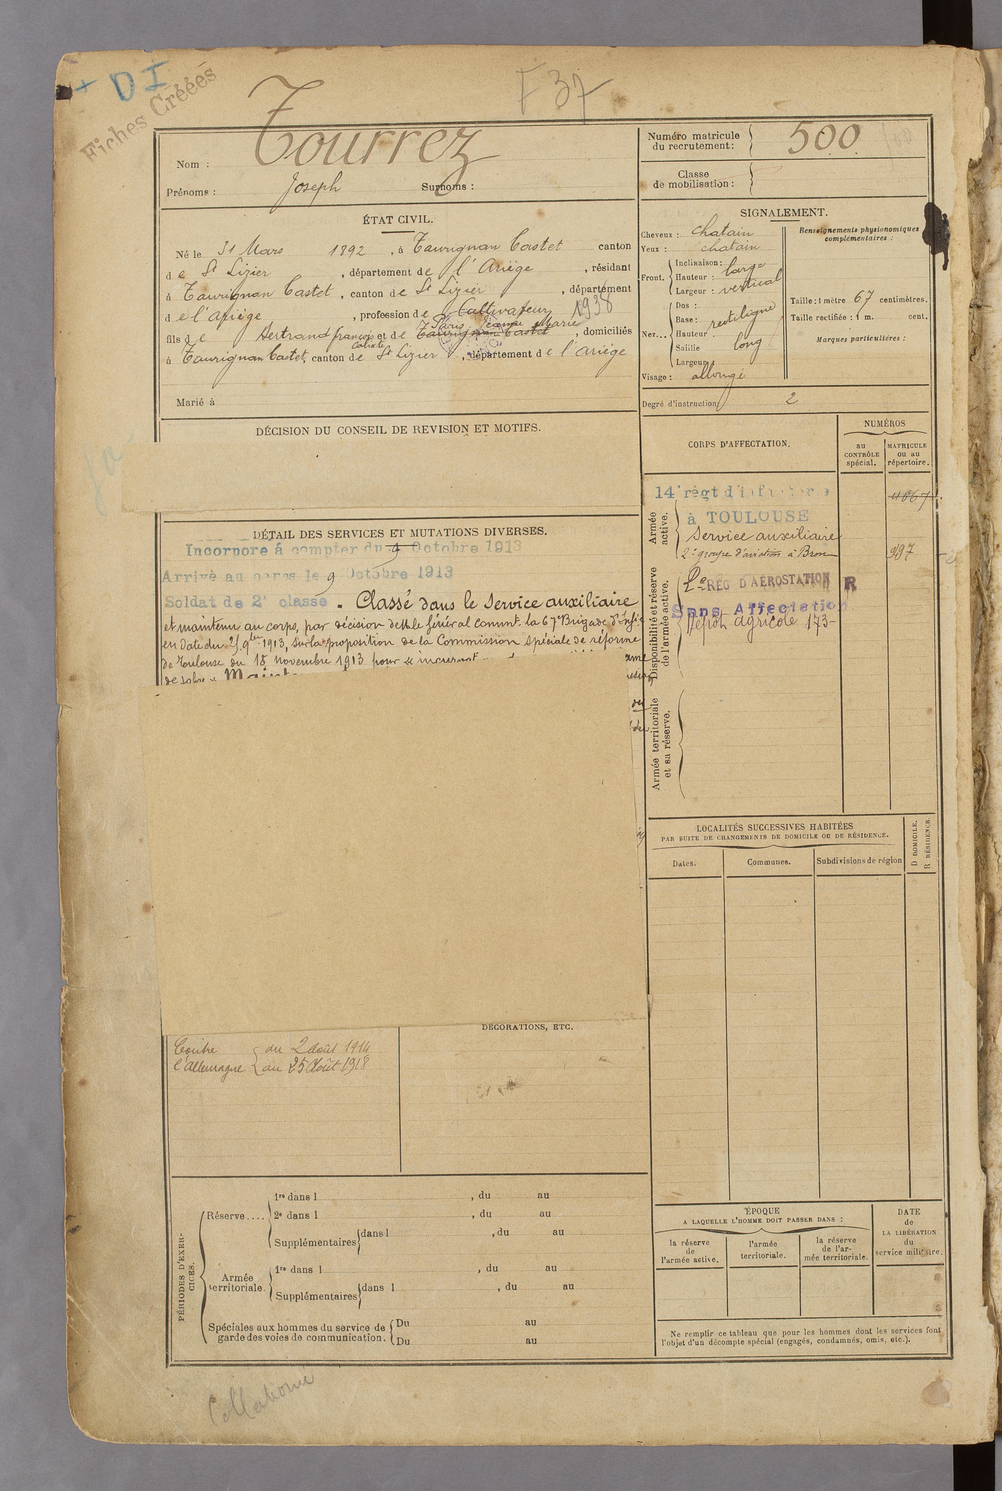 + DI
Fiches Créées
F 37
Nom : Tourrez
Prénoms : Joseph Surnoms :
Numéro matricule du recrutement : 500
Classe de mobilisation :
ÉTAT CIVIL.
Né le 31 Mars 1892, à Taurignan Castet canton
de St Lizier, département de l'Ariège, résidant
à Taurignan Castet, canton de St Lizier, département
de l'Ariège, profession de Cultivateur 1938
fils de Bertrand françois et de Paris Jeanne Marie, domiciliés
à Taurignan Castet, canton de St Lizier, département de l'Ariège
Marié à
SIGNALEMENT.
Cheveux : chatain
Yeux : chatain
Front.
Inclinaison :
Hauteur : large
Largeur : vertical
Nez...
Dos :
Base : rectiligne
Hauteur
Saillie long
Largeur
Visage : allongé
Renseignements physionomiques complémentaires :
Taille : 1 mètre 67 centimètres.
Taille rectifiée : 1 m. cent.
Marques particulières :
Degré d'instruction 2
DÉCISION DU CONSEIL DE REVISION ET MOTIFS.
DÉTAIL DES SERVICES ET MUTATIONS DIVERSES.
Incorporé à compter du 9 Octobre 1913
Arrivé au corps le 9 Octobre 1913
Soldat de 2e classe. Classé dans le Service auxiliaire
et maintenu au corps, par décision de Mr le Général commt la 67e Brigade d'Infie
en date du 25 9bre 1913, sur la proposition de la Commission spéciale de réforme
de Toulouse du 18 novembre 1913 pour
CORPS D'AFFECTATION.
NUMÉROS
au CONTRÔLE spécial.
MATRICULE ou au répertoire.
Armée active.
14e régt d'infanterie
à TOULOUSE
Service auxiliaire
2e groupe d'aviation à Bron
Disponibilité et réserve de l'armée active.
RÉG D'AÉROSTATION R
Sans Affectation
Dépôt agricole 173
Armée territoriale et sa réserve.
LOCALITÉS SUCCESSIVES HABITÉES
PAR SUITE DE CHANGEMENTS DE DOMICILE OU DE RÉSIDENCE.
Dates.
Communes.
Subdivisions de région
D DOMICILE.
R RÉSIDENCE
DÉCORATIONS, ETC.
Contre l'Allemagne
du 2 Août 1914
au 25 Août 1918
PÉRIODES D'EXERCICES.
Réserve....
1re dans l , du au
2e dans l , du au
Supplémentaires dans l , du au
Armée territoriale.
1re dans l , du au
Supplémentaires dans l , du au
Spéciales aux hommes du service de garde des voies de communication.
Du au
Du au
ÉPOQUE
A LAQUELLE L'HOMME DOIT PASSER DANS :
la réserve de l'armée active.
l'armée territoriale.
la réserve de l'armée territoriale.
DATE de LA LIBÉRATION du service militaire.
Ne remplir ce tableau que pour les hommes dont les services font
l'objet d'un décompte spécial (engagés, condamnés, omis, etc.).